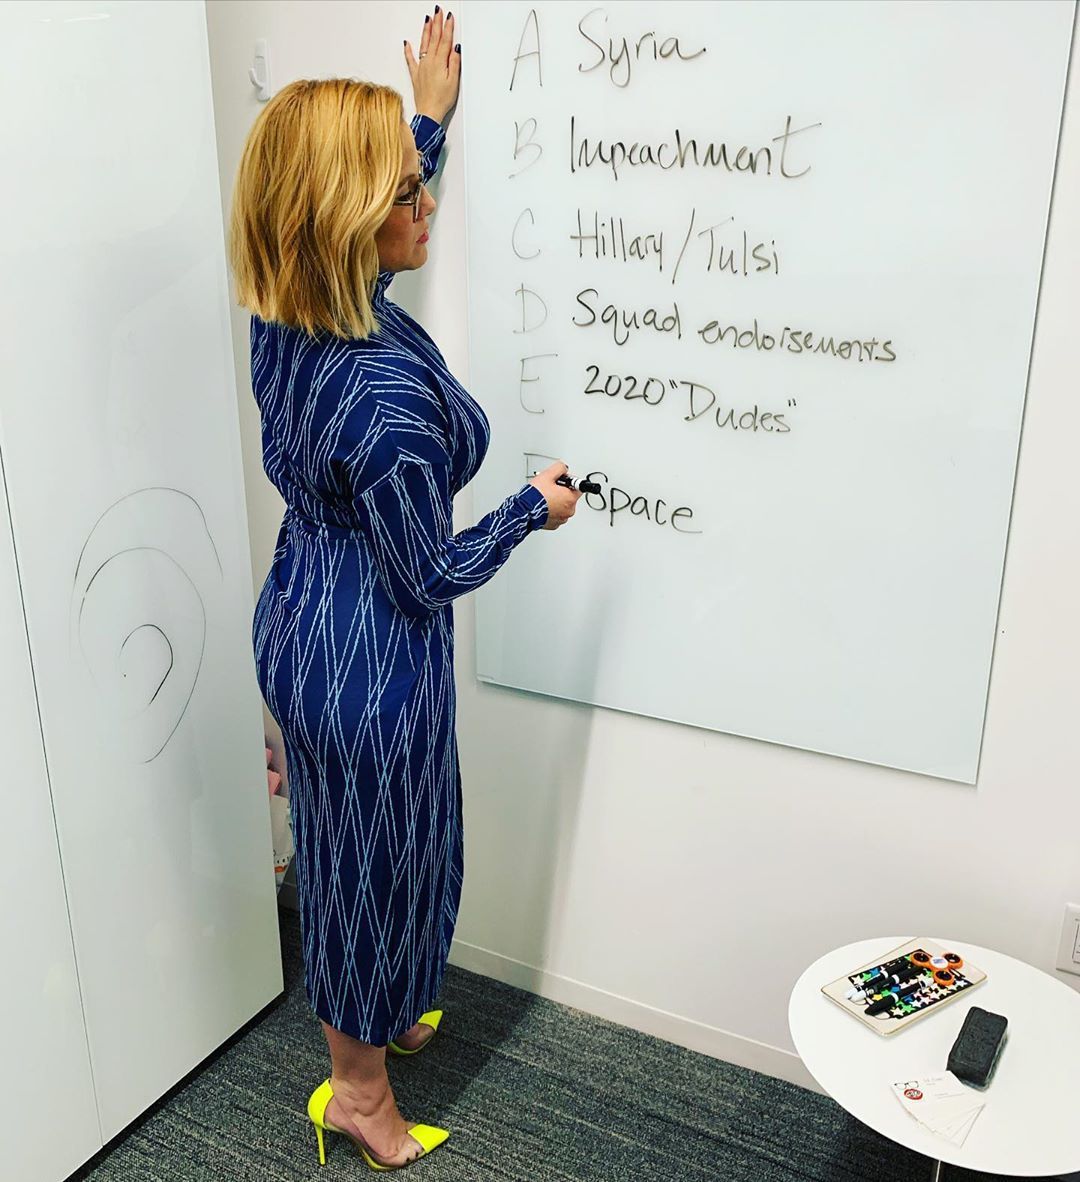 A Syria
B Impeachment
C Hillary/Tulsi
D Squad endorsements
E 2020 "Dudes"
F Space